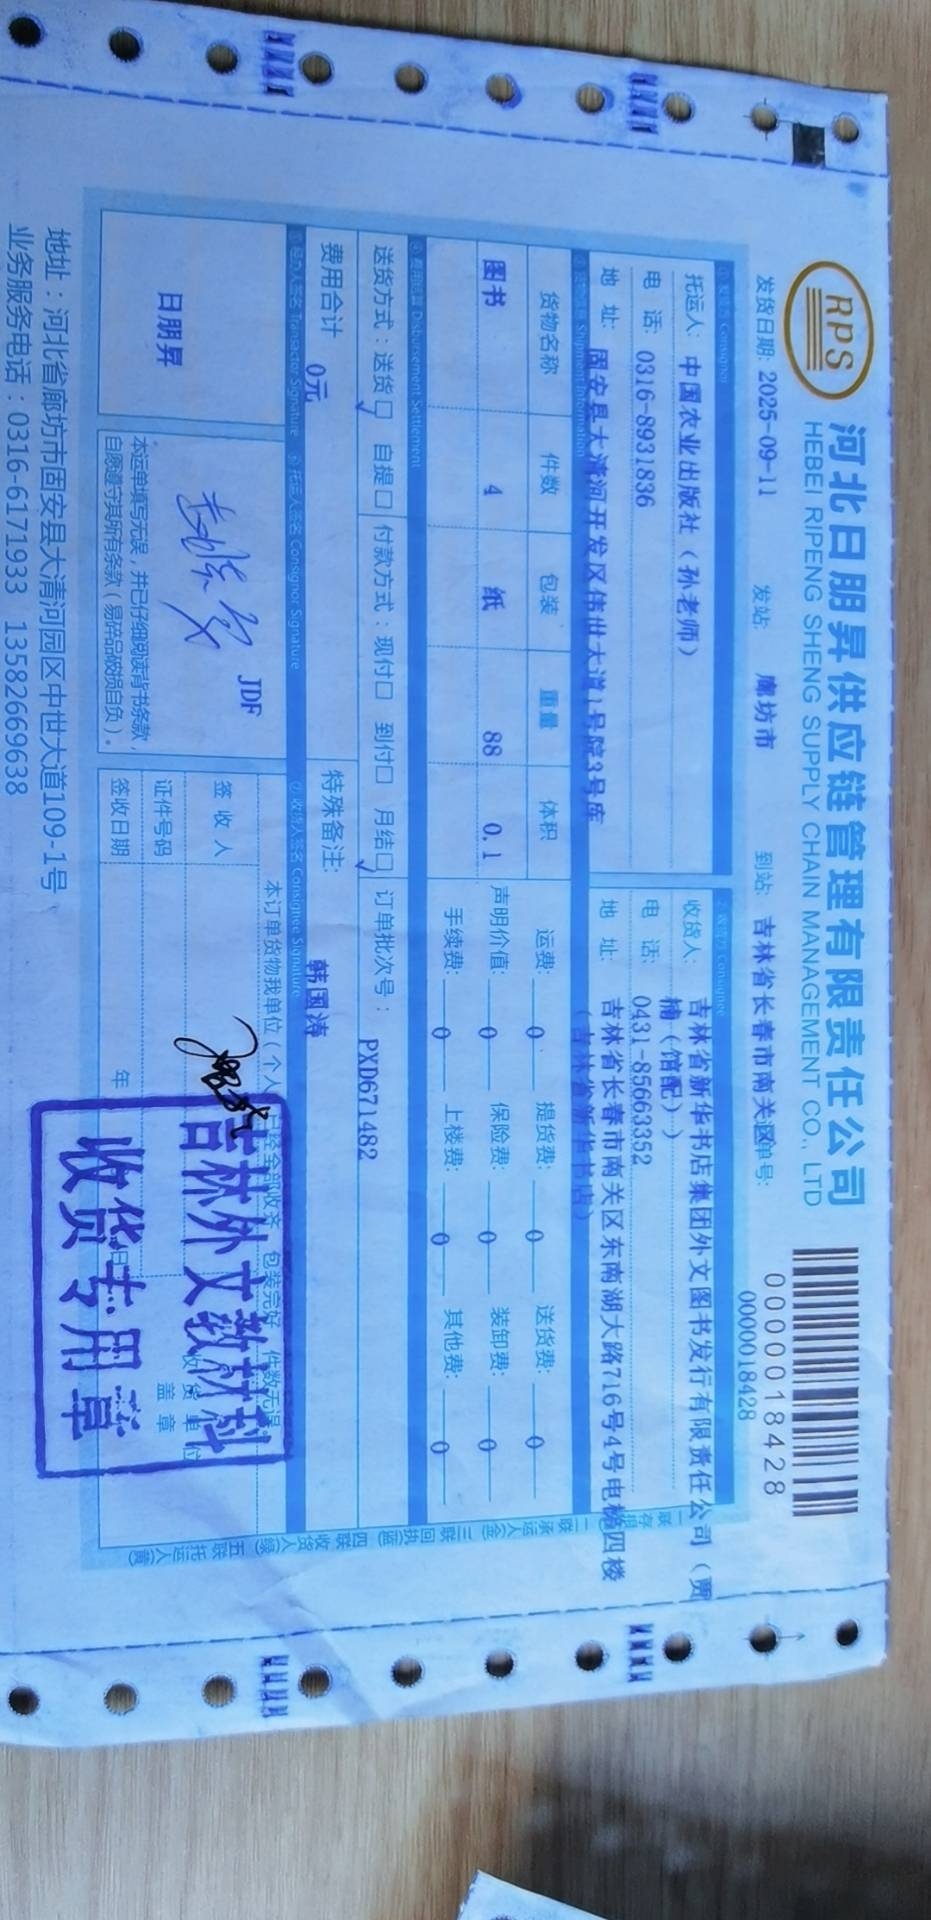 RPS
河北日朋昇供应链管理有限责任公司
HEBEI RIPENG SHENG SUPPLY CHAIN MANAGEMENT CO., LTD
0000018428
发货日期: 2025-09-11 发站: 廊坊市 到站: 吉林省长春市南关区 单号: 0000018428
①发货方 Consignor
托运人: 中国农业出版社（孙老师）
电 话: 0316-8931836
地 址: 固安县大清河开发区伟世大道1号院3号库
②收货方 Consignee
收货人: 吉林省新华书店集团外文图书发行有限责任公司（贾
楠（馆配））
电 话: 0431-85663352
地 址: 吉林省长春市南关区东南湖大路716号4号电梯四楼
（吉林省新华书店）
Shipment Information
货物名称 件数 包装 重量 体积
图书 4 纸 88 0.1
运费: 0 提货费: 0 送货费: 0
声明价值: 0 保险费: 0 装卸费: 0
手续费: 0 上楼费: 0 其他费: 0
④费用结算 Disbursement Settlement
送货方式：送货☑ 自提□ 付款方式：现付□ 到付□ 月结☑ 订单批次号： PXD671482
费用合计 0元 特殊备注: 韩国涛
⑤经办人签名 Transactor Signature
⑥托运人签名 Consignor Signature
⑦收货人签名 Consignee Signature
日朋昇
JDF
本运单填写无误，并已仔细阅读背书条款，
自愿遵守其所有条款（易碎品破损自负）。
本订单货物我单位（个人）已经全部收齐 包装完好 件数无误
签 收 人
收货单位
证件号码
盖 章
签收日期 年 日
吉林外文教材科
收货专用章
二联承运人(金) 三联回执(蓝) 四联收货人(绿) 五联托运人(黄)
地址：河北省廊坊市固安县大清河园区中世大道109-1号
业务服务电话：0316-6171933 13582669638